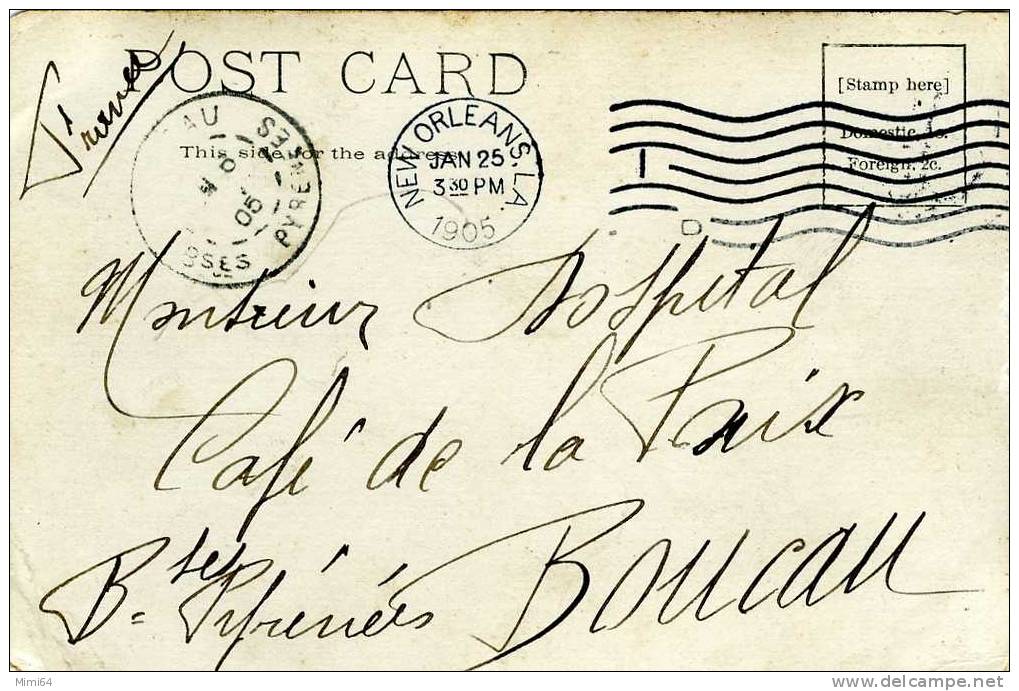 POST CARD
France
[Stamp here]
Domestic, 1c.
Foreign, 2c.
This side for the address
NEW ORLEANS, LA.
JAN 25
3 30 PM
1905
AU
BSES PYRENEES
05
Monsieur Hospital
Café de la Paix
Boucau
Bses Pyrénées
Mimi64
www.delcampe.net